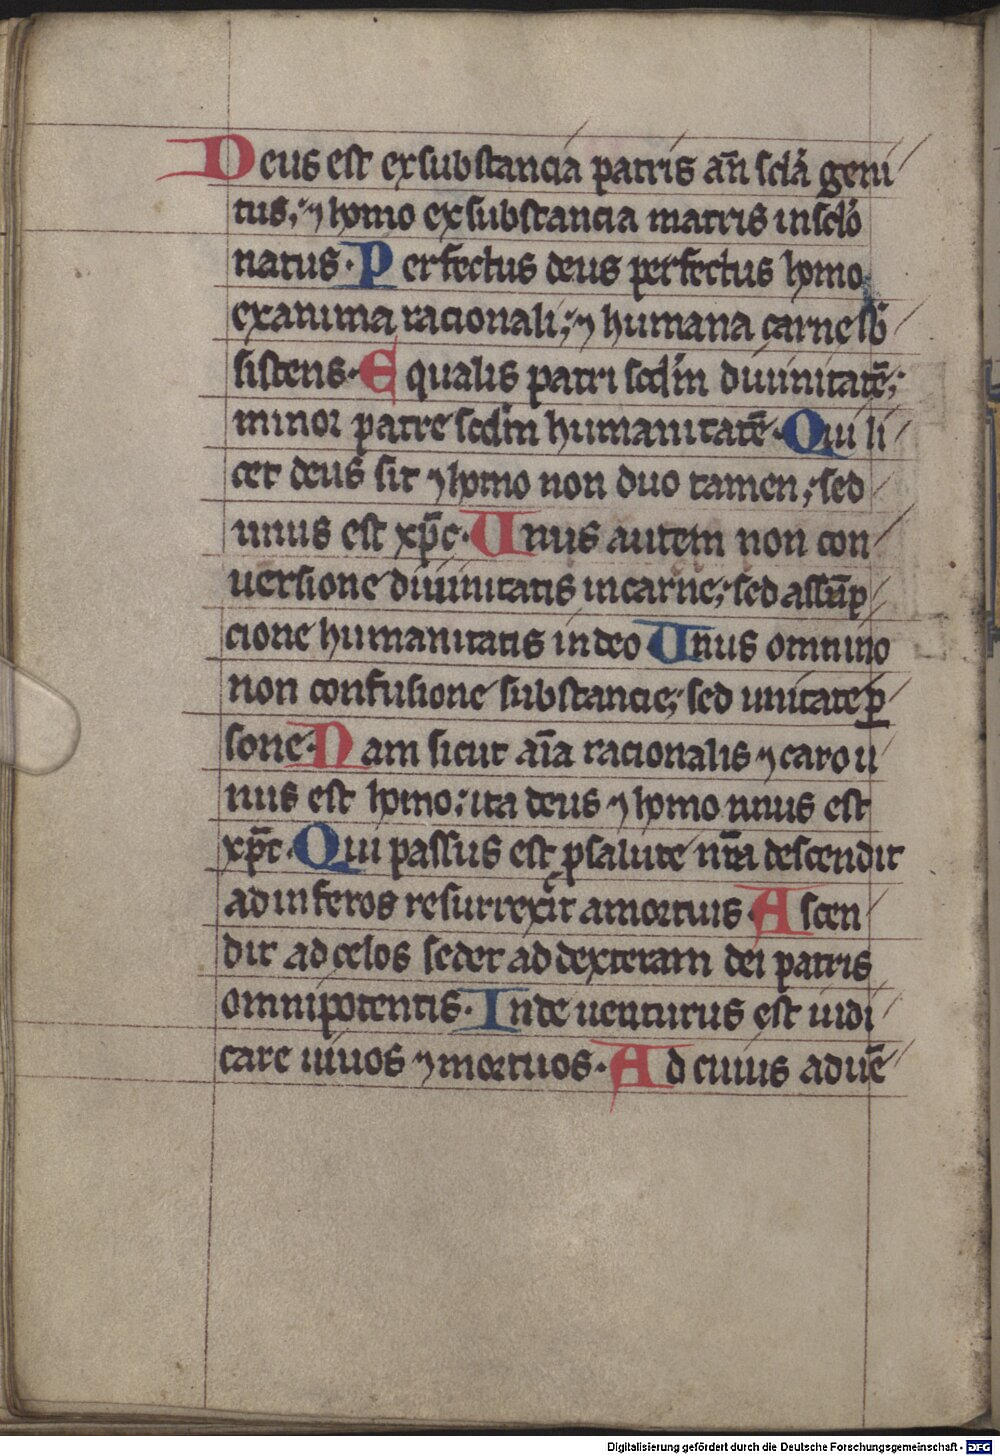 Deus est ex substancia patris an̄ sc̄la geni
tus; ⁊ homo ex substancia matris in sc̄lo
natus. Perfectus deus perfectus homo
ex anima racionali; ⁊ humana carne sb̄
sistens. Equalis patri sc̄dm diuinitatē;
minor patre sc̄dm humanitatē. Qui li
cet deus sit ⁊ homo non duo tamen; sed
unus est xp̄c. Unus autem non con
uersione diuinitatis in carne; sed assūp
cione humanitatis in deo Unus omnino
non confusione substancie; sed unitate ꝑ
sone. Nam sicut aīa racionalis ⁊ caro u
nus est homo; ita deus ⁊ homo unus est
xp̄c. Qui passus est ꝓ salute nr̄a descendit
ad inferos resurrexit a mortuis. Ascen
dit ad celos sedet ad dexteram dei patris
omnipotentis. Inde uenturus est iudi
care uiuos ⁊ mortuos. Ad cuius aduē
Digitalisierung gefördert durch die Deutsche Forschungsgemeinschaft - DFG